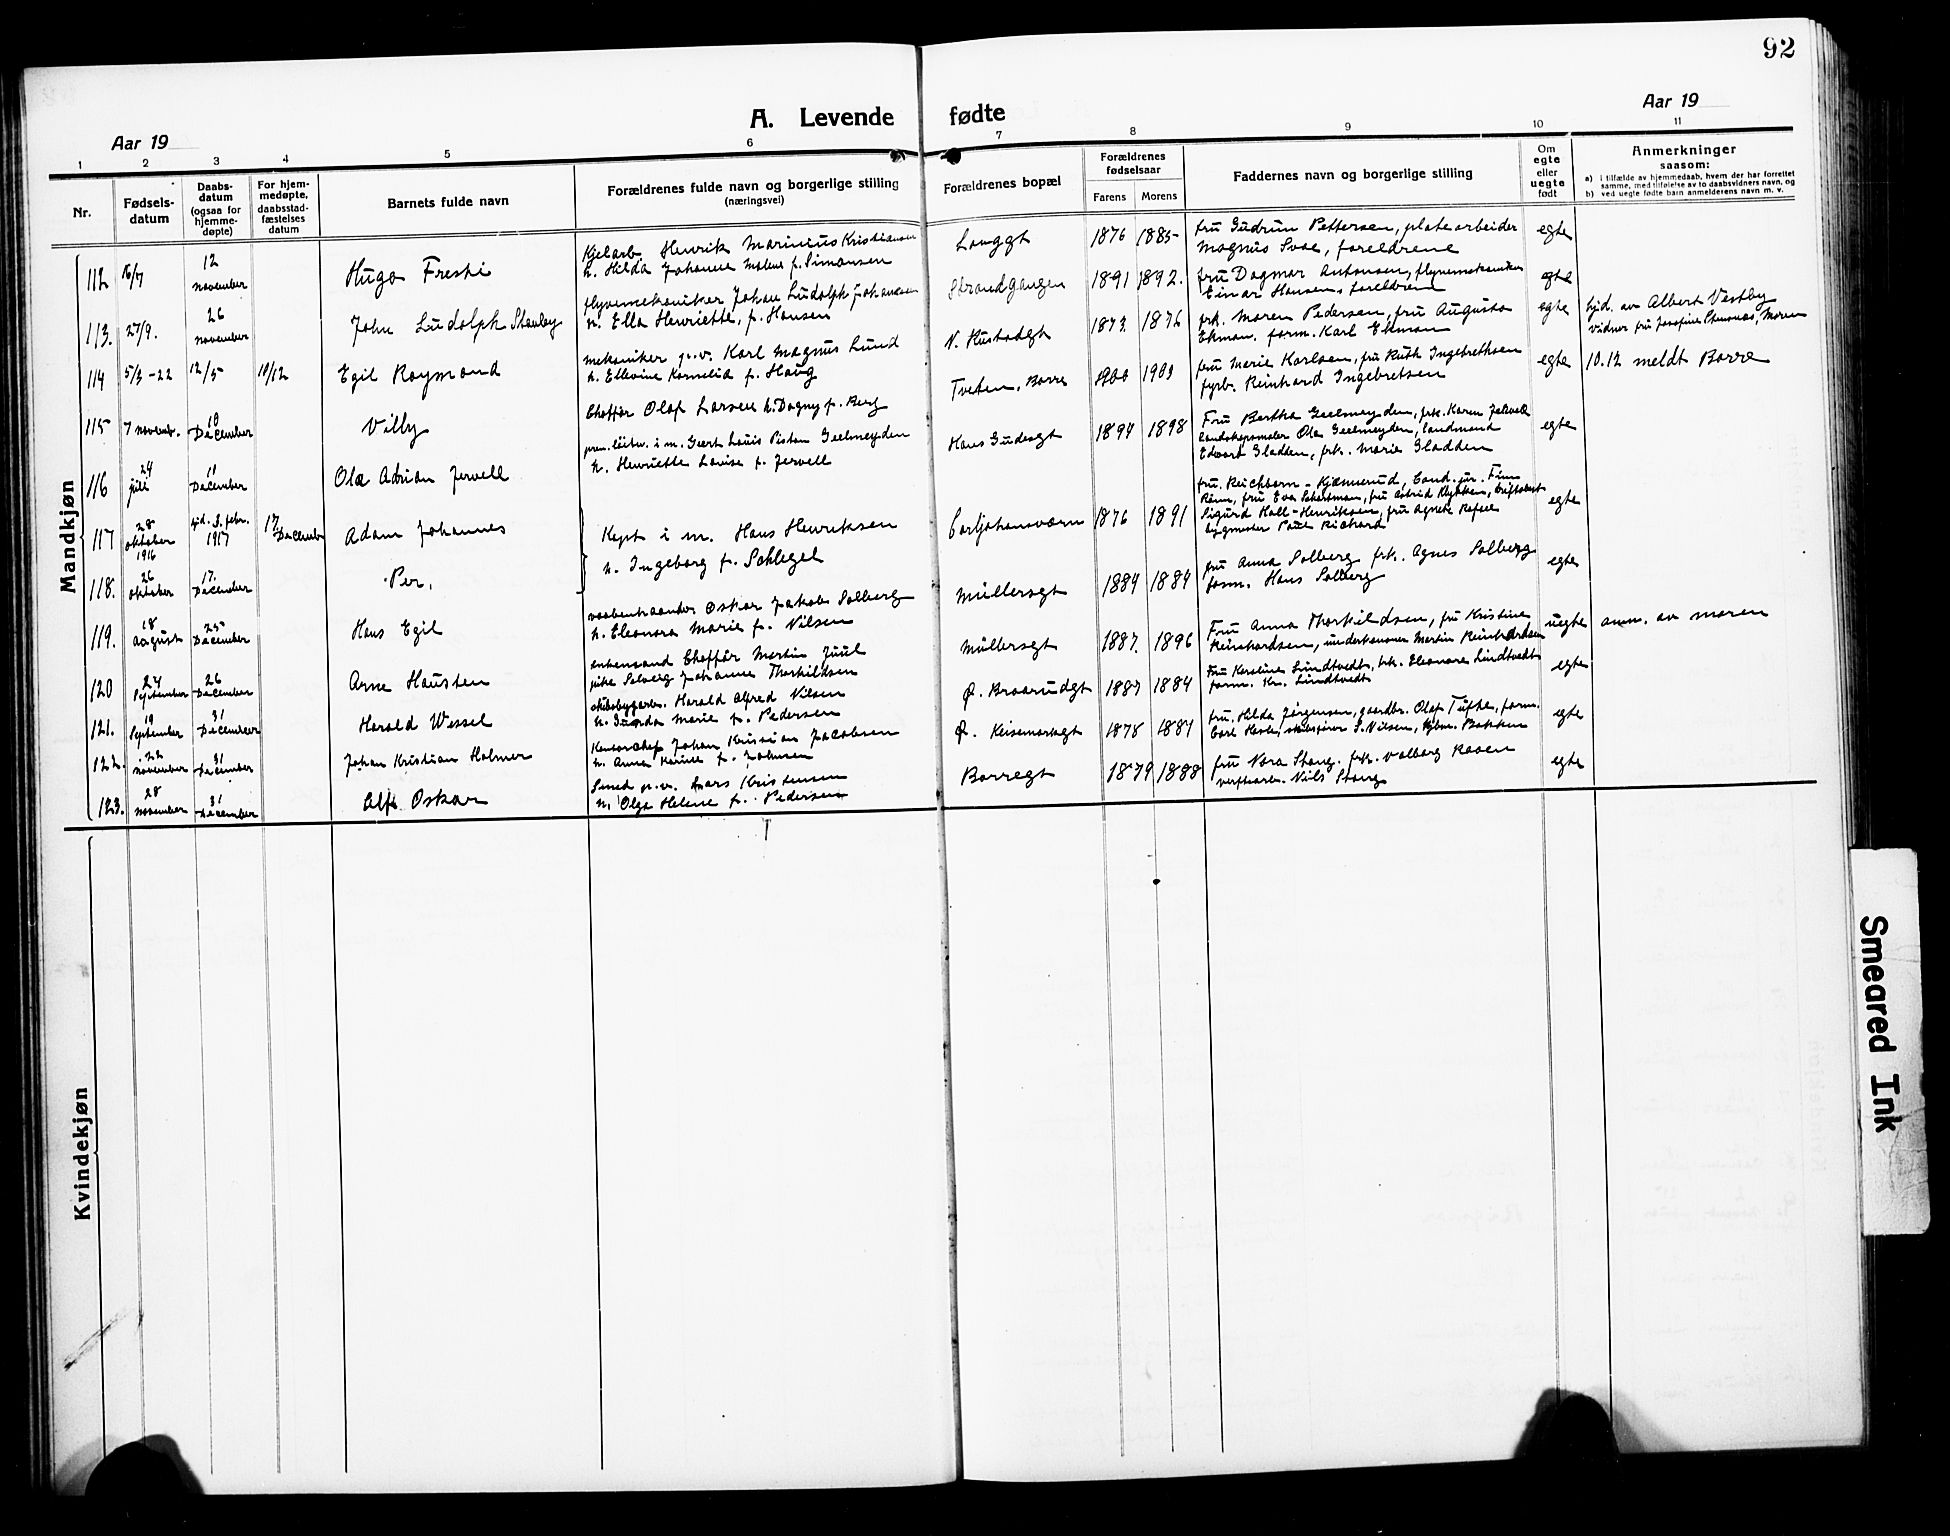 92
A. Levende fødte
Aar 19
Aar 19
1 2 3 4 5 6 7 8 9 10 11
Nr.
Fødsels-
datum
Daabs-
datum
(ogsaa for
hjemme-
døpte)
For hjem-
medøpte,
daabsstad-
fæstelses
datum
Barnets fulde navn
Forældrenes fulde navn og borgerlige stilling
(næringsvei)
Forældrenes bopæl
Forældrenes
fødselsaar
Farens Morens
Faddernes navn og borgerlige stilling
Om
egte
eller
uegte
født
Anmerkninger
saasom:
a) i tilfælde av hjemmedaab, hvem der har forrettet
samme, med tilføielse av to daabsvidners navn, og
b) ved uegte fødte barn anmelderens navn m. v.
Mandkjøn
112 16/7 12 november Hugo Freski
Kjelarb. Henrik Marinius Kristiansen
h. Hilda Johanne Malene f. Simonsen
Langgt 1876 1885
fru Gudrun Pettersen, platearbeider
Magnus Svae, foreldrene
egte
113. 27/9. 26 november John Ludolph Stanley
flyvemekaniker Johan Ludolph Johansen
h. Ella Henriette, f. Hansen
Strandgangen 1891 1892.
fru Dagmar Antonsen, flyvemekaniker
Einar Hansen, foreldrene
egte
114 5/3-22 12/5 10/12 Egil Raymond
mekaniker g.v. Karl Magnus Lund
h. Ellevine Kornelia f. Haug
N. Hustadgt 1873 1876
frk. Maren Pedersen, fru Augusta
Ekman, form. Karl Ekman
egte
hjd. av Albert Vestby
vidner fru Josefine Stensnæs, Moren
115 7 novemb. 10 December Villy
Choffør Olaf Larsen h. Dagny f. Berg
Tveten, Borre 1900 1901
fru Marie Karlsen, fru Ruth Ingebrethsen
fyrb. Reinhard Ingebretsen
egte
10.12 meldt Borre
116 24 juli 11 December Ola Adrian Jervell
prem. løitn. i m. Geert Louis Piston Geelmeyden
h. Henriette Lovise f. Jervell
Hans Gudesgt 1894 1898
Fru Bertha Geelmeyden, frk. Karen Jervell
landskapsmaler Ola Geelmeyden, landmand
Edvart Gladden, frk. Marie Gladden
egte
117 28 oktober 1916 hjd. 3. febr. 1917 17 December Adam Johannes
118. 26 oktober 17. December Per.
Kapt i m. Hans Henriksen
h. Ingeborg f. Schlegel
Carljohansværn 1876 1891
fru. Reichborn-Kjennerud, Cand. jur. Finn
Rønn, fru Eva Scharfman, fru Astrid Klykken, Driftsbest
Sigurd Hall-Henriksen, fru Agnete Refsee
bygmester Paul Richard
egte
119. 18 August 25 December Hans Egil
vaabenhaandv. Oskar Jakob Solberg
h. Eleonora Marie f. Nilsen
Müllersgt 1884 1884
fru Anna Solberg frk. Agnes Solberg
form. Hans Solberg
egte
120 27 September 26 December Arne Hausten
enkemand Choffør Martin Juul
pike Solveig Johanne Thorkildsen
Müllersgt 1887. 1896
Fru Anna Thorkildsen, fru Kristine
Reinhardsen, underkanoner Martin Reinhardsen
uegte
anm. av moren
121. 19 September 31 December Harald Wessel
skibsbyggerarb. Harald Alfred Nilsen
h. Gunda Marie f. Pedersen
Ø. Braarudgt 1887 1884
Fru Karoline Lindtvedt, frk. Eleonore Lindtvedt
form. Kr. Lindtvedt
egte
122. 22 november 31 December Johan Kristian Holmer
Kontorchef Johan Kristian Jacobsen
h. Anna Karine f. Johnsen
Ø. Keisemarkgt 1878 1887
fru. Hilda Jørgensen, gaardbr. Olaf Tufte, form.
egte
123. 28 november 31 December Alf Oskar
Smed g.v. Lars Kristensen
h. Olga Helene f. Pedersen
Borregt 1879 1888
fru Nora Stang. frk. Valborg Raaen
verftsarb. Nils Stang
egte
Kvindekjøn
Smeared Ink